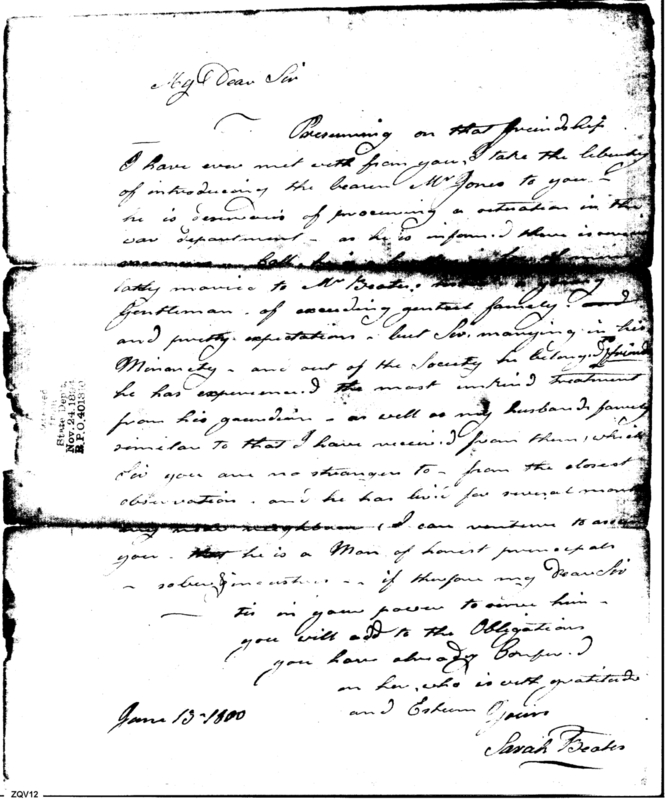 My Dear Sir
Presuming on that friendship
I have ever met with from you, I take the liberty
of introducing the bearer Mr Jones to you -
he is desireous of procuring a situation in the
war department - as he is inform.d there is
lately married to Mr Beates, young
Gentleman - of exceeding genteel family - and
and pretty expectations - but Sir, marrying in his
Minority - and out of the Society he belong.d to, friends
he has experience.d the most unkind treatment
from his guardian - as well as my husbands family
similar to that I have receive.d from them, which
Sir you are no stranger to - from the closest
observation - and he has liv'd for several months
my next neighbour, I can venture to assure
you - that he is a Man of honest principals
- sober & industrious - - if therefore my Dear Sir
tis in your power to serve him -
you will add to the Obligations
you have already Confer.d
on her, who is with gratitude
and Esteem Yours
June 13th 1800
Sarah Beates
State Dept.
Nov. 24, 18
B.P.O. 401
ZQV12